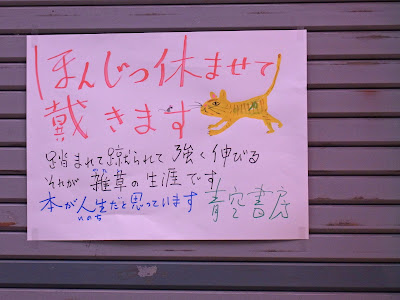 ほんじつ休ませて
戴きます
踏まれて蹴られて強く伸びる
それが雑草の生涯です
本が人生だと思っています 青空書房
いのち